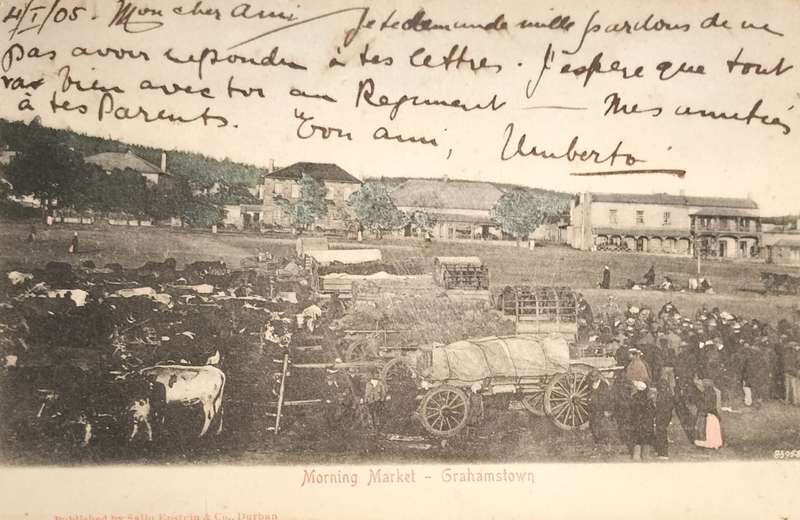 4/I/05 - Mon cher Ami - Je te demande mille pardons de ne
pas avoir repondu à tes lettres. J'espere que tout
va bien avec toi au Regiment — Mes amitiés
à tes Parents. Ton ami, Umberto
Morning Market - Grahamstown
Published by Sallo Epstein & Co., Durban